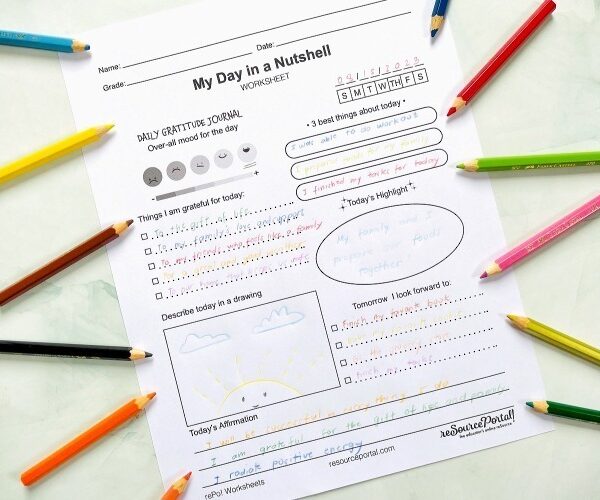 Name:
Date:
Grade:
My Day in a Nutshell
WORKSHEET
09/15/2023
S M T W TH F S
DAILY GRATITUDE JOURNAL
Over-all mood for the day
- +
• 3 best things about today •
I was able to do workout
I prepared foods for my family
I finished my tasks for today
Things I am grateful for today:
To the gift of life
To my family's love and support
To my friends who feels like a family
To our home that
Today's Highlight
My family and I
prepare our foods
together!
Describe today in a drawing
Tomorrow I look forward to:
finish my favorite book
finish my tasks
Today's Affirmation
I will be successful in everything I do
I am grateful for the gift of life and family
I radiate positive energy
rePo! Worksheets
resourceportal.com
reSourcePortal!
the educator's online resource